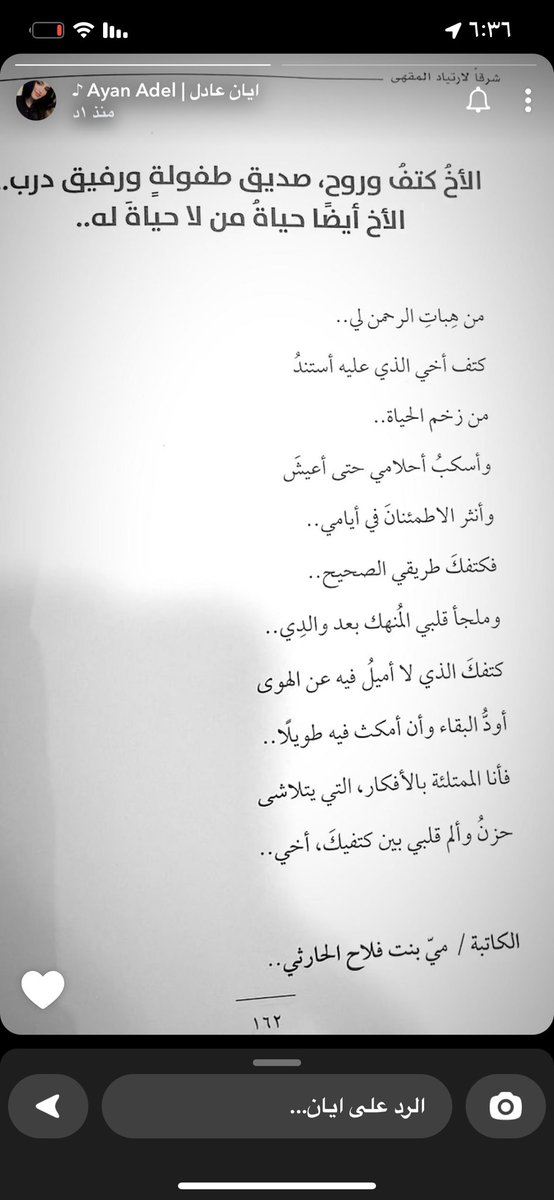 ٦:٣٦
شرفاً لارتياد المقهى
ايان عادل | Ayan Adel ♪
منذ ١د
الأخُ كتفُ وروح، صديق طفولةٍ ورفيق درب..
الأخ أيضًا حياةُ من لا حياةَ له..
من هِباتِ الرحمن لي..
كتف أخي الذي عليه أستندُ
من زخم الحياة..
وأسكبُ أحلامي حتى أعيشَ
وأنثر الاطمئنانَ في أيامي..
فكتفكَ طريقي الصحيح..
وملجأ قلبي المُنهك بعد والدِي..
كتفكَ الذي لا أميلُ فيه عن الهوى
أودُّ البقاء وأن أمكث فيه طويلًا..
فأنا الممتلئة بالأفكار، التي يتلاشى
حزنُ وألم قلبي بين كتفيكَ، أخي..
الكاتبة / ميّ بنت فلاح الحارثي..
١٦٢
الرد على ايان...